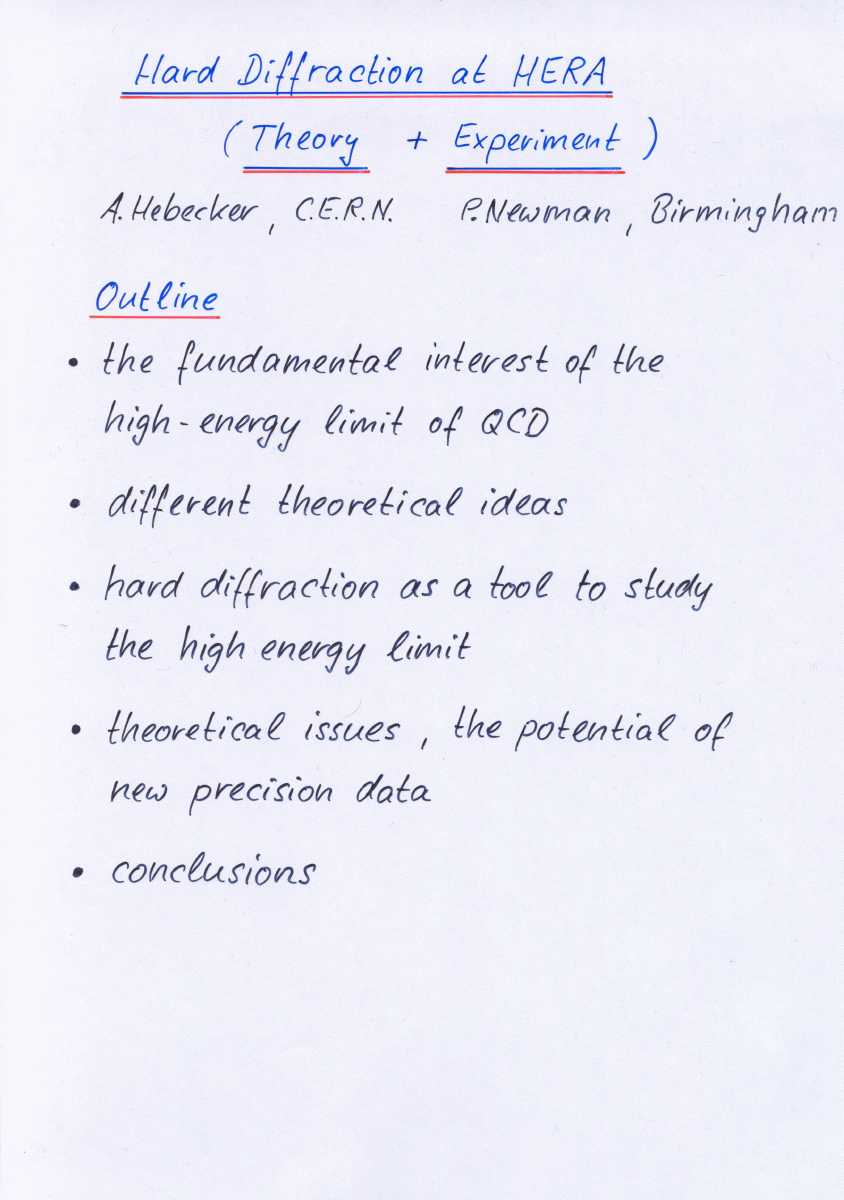 Hard Diffraction at HERA
( Theory + Experiment )
A. Hebecker , C.E.R.N. P. Newman , Birmingham
Outline
• the fundamental interest of the
high-energy limit of QCD
• different theoretical ideas
• hard diffraction as a tool to study
the high energy limit
• theoretical issues , the potential of
new precision data
• conclusions